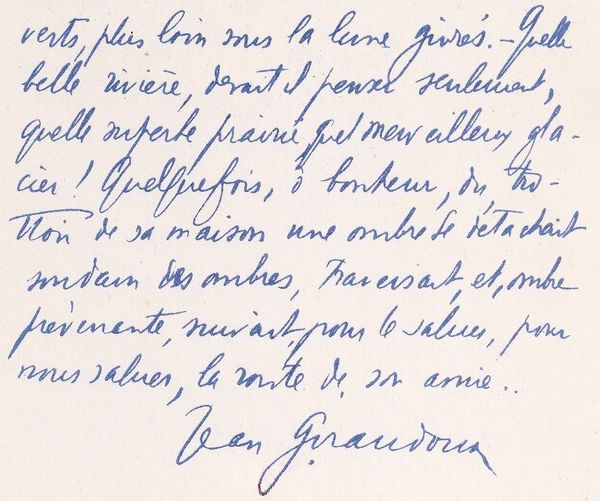 verts, plus loin sous la lune givrés. – Quelle
belle rivière, devait il penser seulement,
quelle superbe prairie, quel merveilleux gla-
cier! Quelquefois, ô bonheur, du tro-
ttoir de sa maison une ombre se détachait
soudain des ombres, traversait, et, ombre
prévenante, suivait, pour le saluer, pour
nous saluer, la route de son amie..
Jean Giraudoux